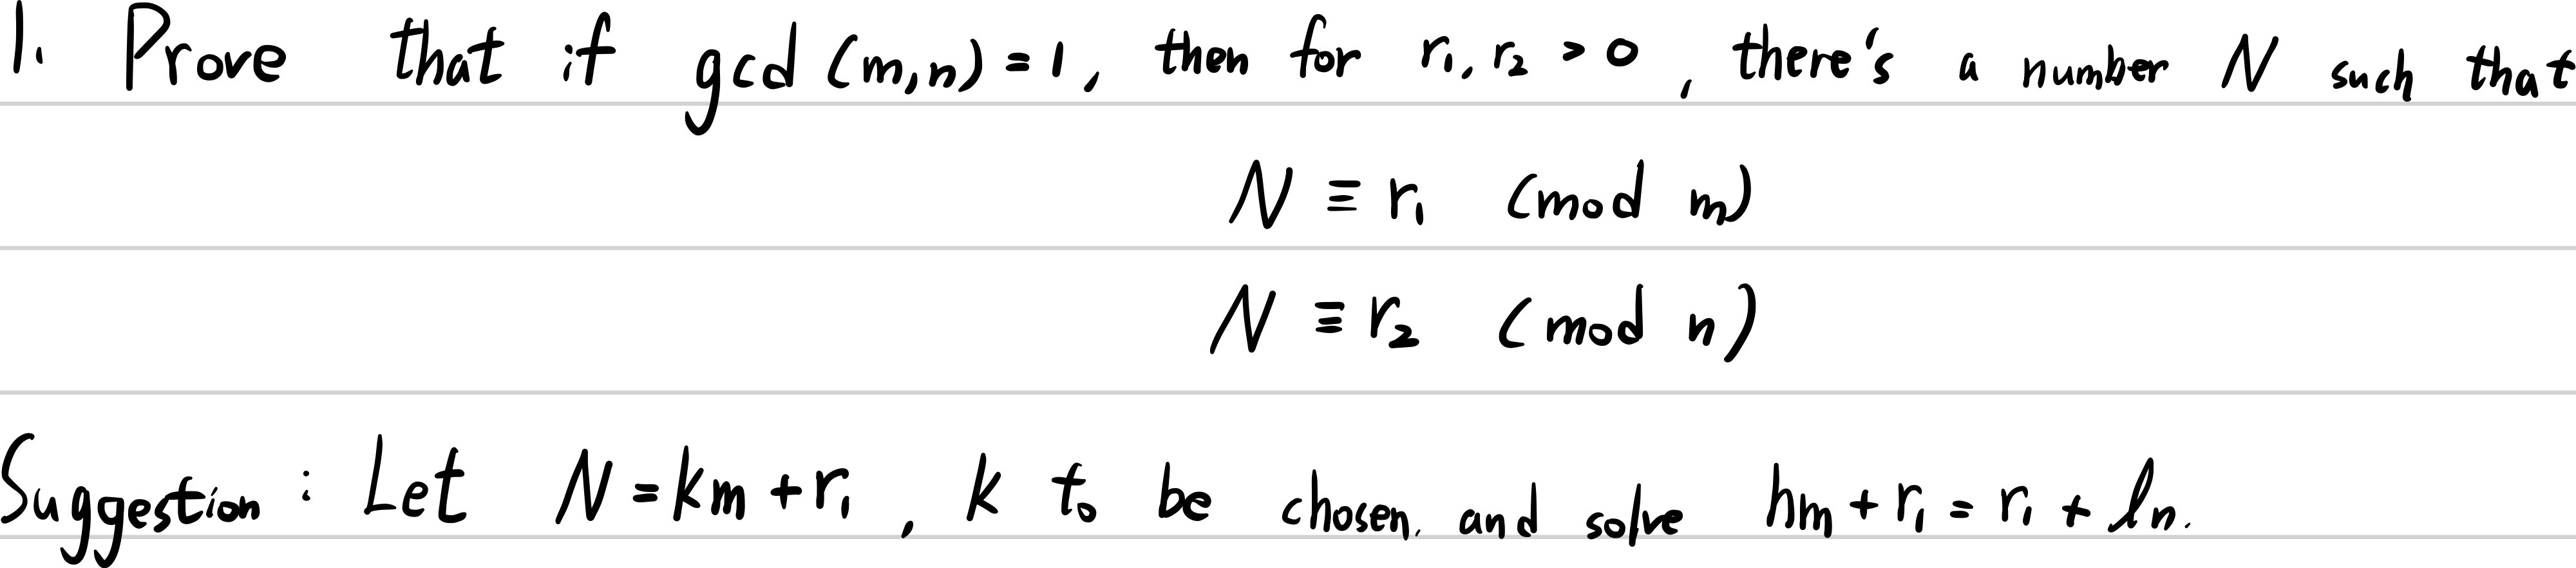 1. Prove that if gcd (m,n) = 1, then for r₁, r₂ > 0, there's a number N such that
N ≡ r₁ (mod m)
N ≡ r₂ (mod n)
Suggestion : Let N = km + r₁, k to be chosen. and solve hm + r₁ = r₁ + ln.